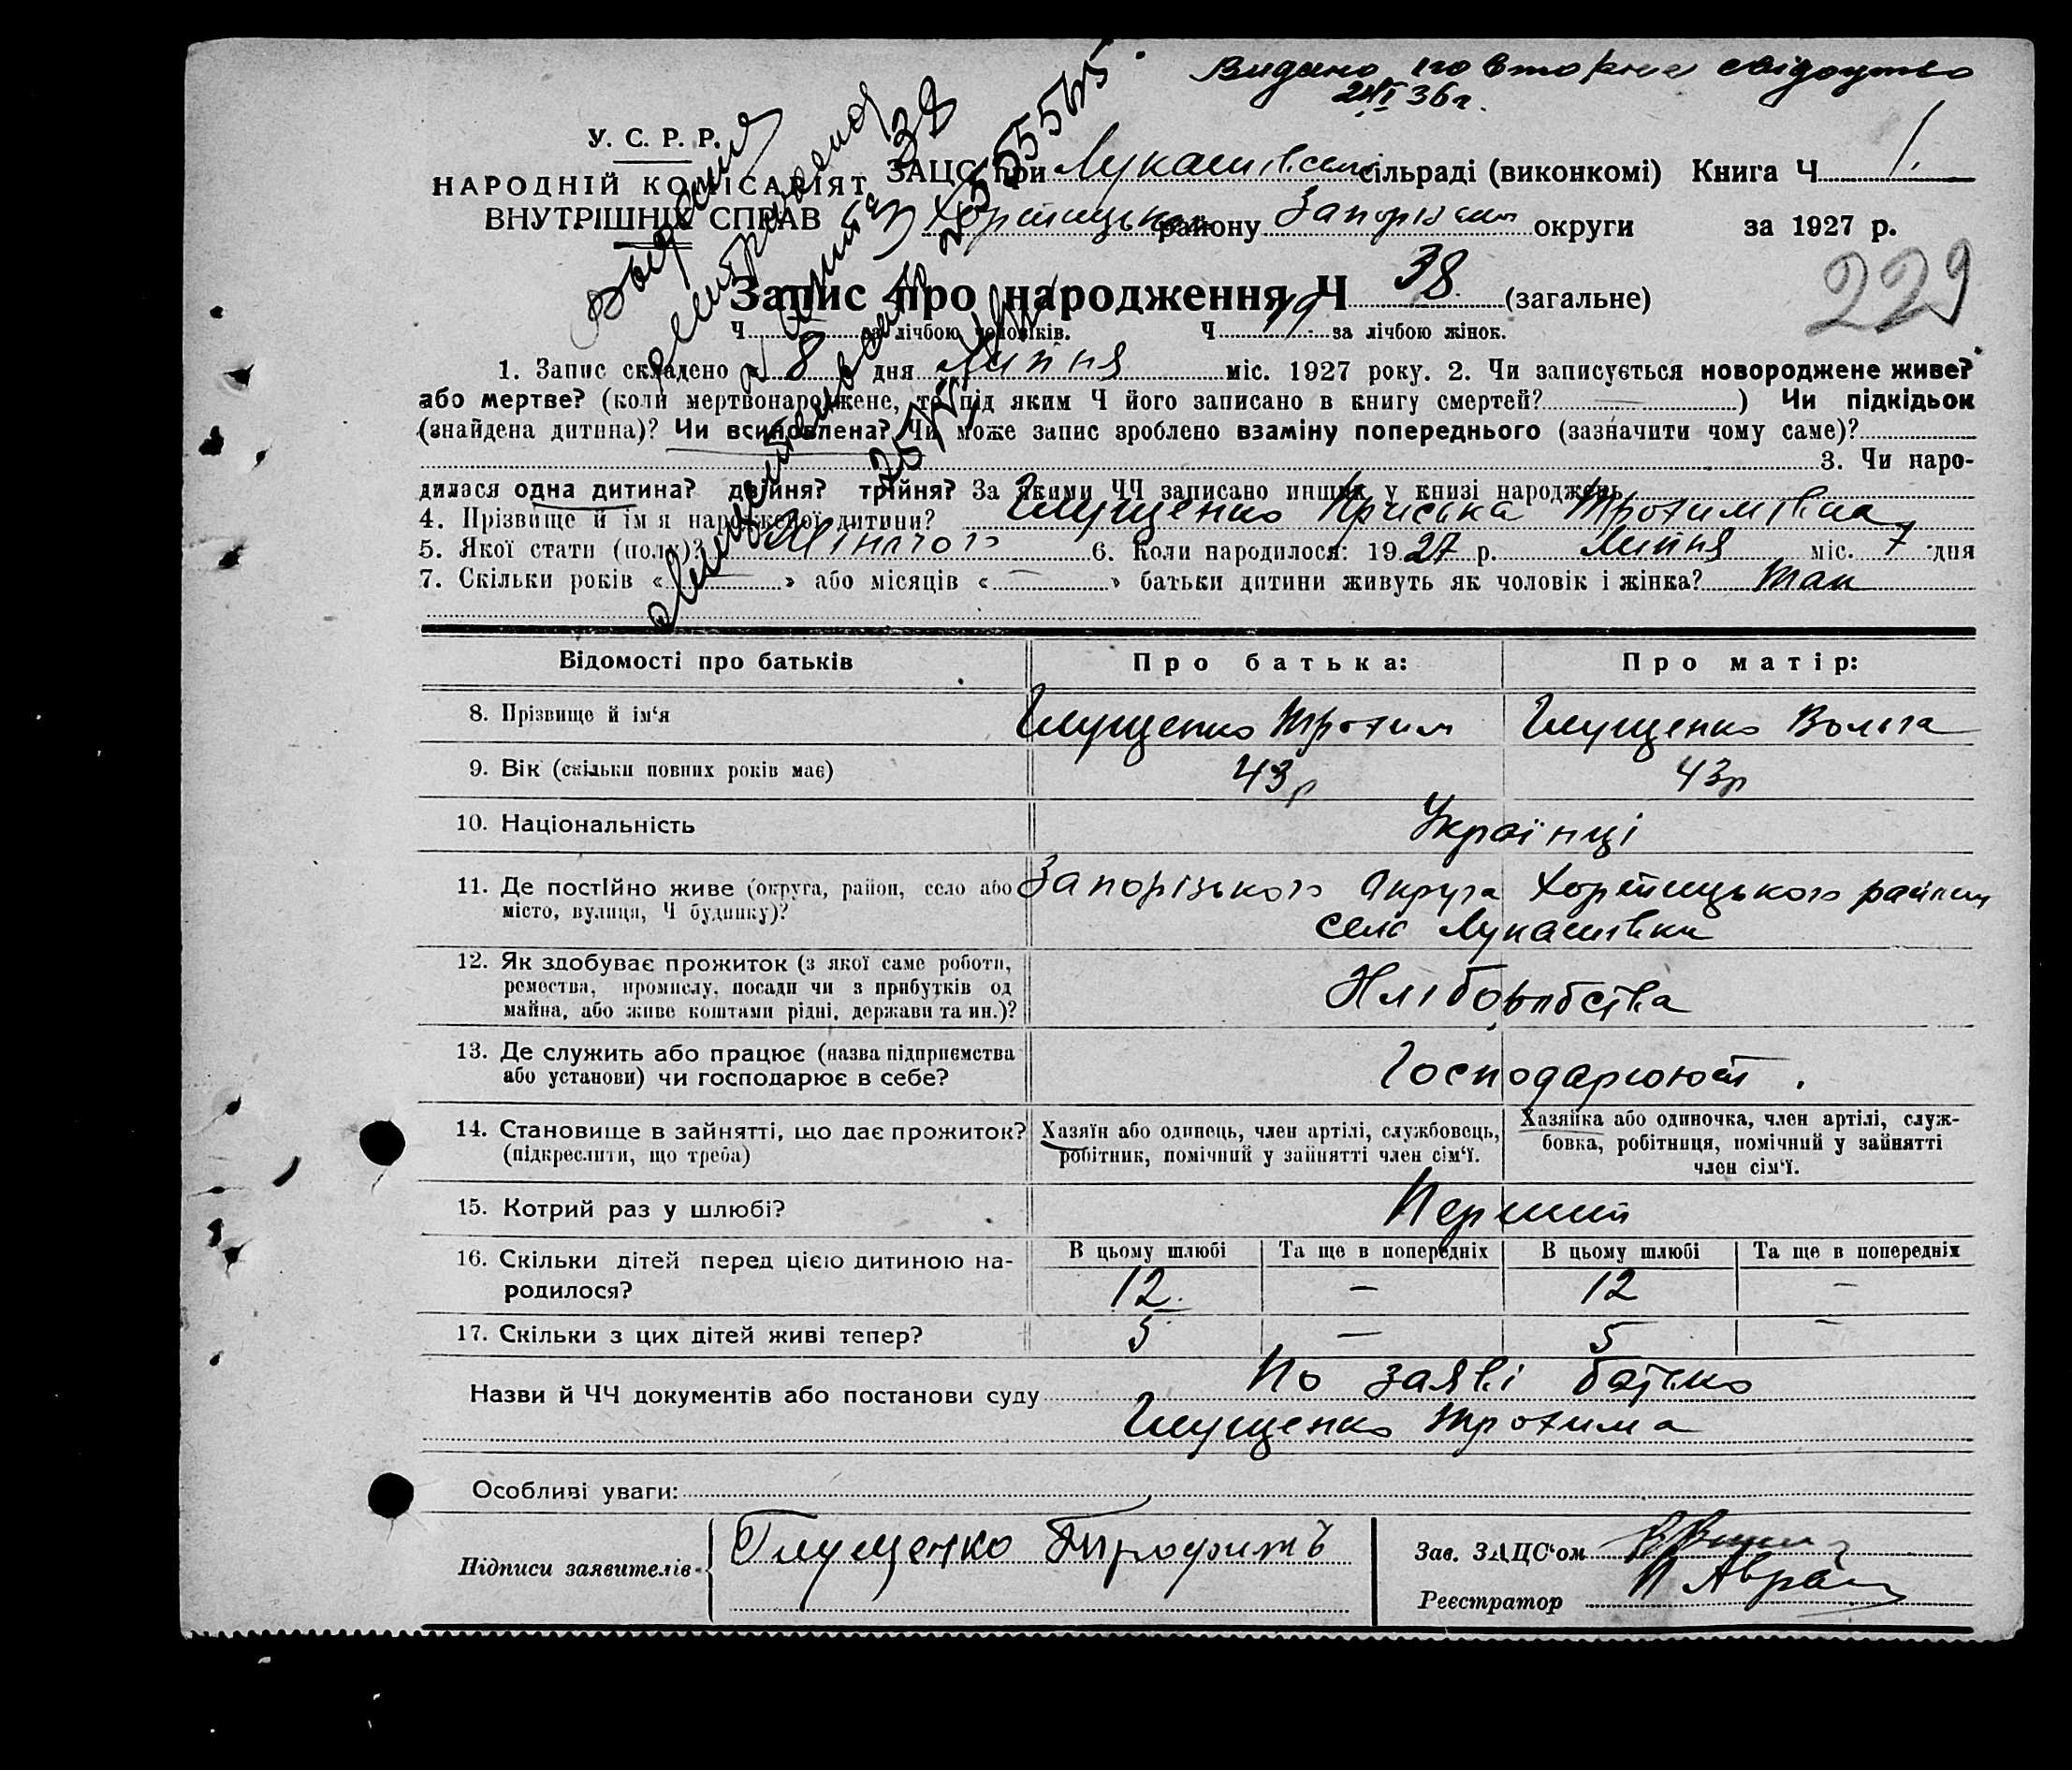 Видано повторне свідоцтво
36 г.
У. С. Р. Р.
НАРОДНІЙ КОМІСАРІЯТ
ВНУТРІШНІХ СПРАВ
ЗАЦС при Лукашівській сільраді (виконкомі) Книга Ч 1.
Хортицького району Запорізької округи за 1927 р.
229
Запис про народження Ч 38 (загальне)
Ч за лічбою чоловіків. Ч 19 за лічбою жінок.
1. Запис складено « 8 дня Липня міс. 1927 року. 2. Чи записується новороджене живе?
або мертве? (коли мертвонароджене, то під яким Ч його записано в книгу смертей? — ) Чи підкідьок
(знайдена дитина)? Чи всиновлена? Чи може запис зроблено взаміну попереднього (зазначити чому саме)?
3. Чи наро-
дилася одна дитина? двійня? трійня? За якими ЧЧ записано инших у книзі народжень
4. Прізвище й ім'я народженої дитини? Глущенко Приська Трохимівна
5. Якої стати (пола)? Жіночого 6. Коли народилося: 1927 р. Липня міс. 7 дня
7. Скільки років « — » або місяців « — » батьки дитини живуть як чоловік і жінка? Так
Відомості про батьків Про батька: Про матір:
8. Прізвище й ім'я Глущенко Трохим Глущенко Вольга
9. Вік (скільки повних років має) 43 р 43 р
10. Національність Українці
11. Де постійно живе (округа, район, село або Запорізького Округа Хортицького району
місто, вулиця, Ч будинку)? село Лукашівки
12. Як здобуває прожиток (з якої саме роботи,
ремества, промислу, посади чи з прибутків од
майна, або живе коштами рідні, держави та ин.)? Хліборобства
13. Де служить або працює (назва підприємства
або установи) чи господарює в себе? Господарюють.
14. Становище в зайнятті, що дає прожиток? Хазяїн або одинець, член артілі, службовець, Хазяйка або одиночка, член артілі, служ-
(підкреслити, що треба) робітник, помічний у зайнятті член сім'ї. бовка, робітниця, помічний у зайнятті
член сім'ї.
15. Котрий раз у шлюбі? Перший
16. Скільки дітей перед цією дитиною на- В цьому шлюбі Та ще в попередніх В цьому шлюбі Та ще в попередніх
родилося? 12. — 12 —
17. Скільки з цих дітей живі тепер? 5 — 5 —
Назви й ЧЧ документів або постанови суду По заяві батько
Глущенко Трохима
Особливі уваги:
Підписи заявителів Глущенко Трофимъ Зав. ЗАЦС'ом
Реєстратор